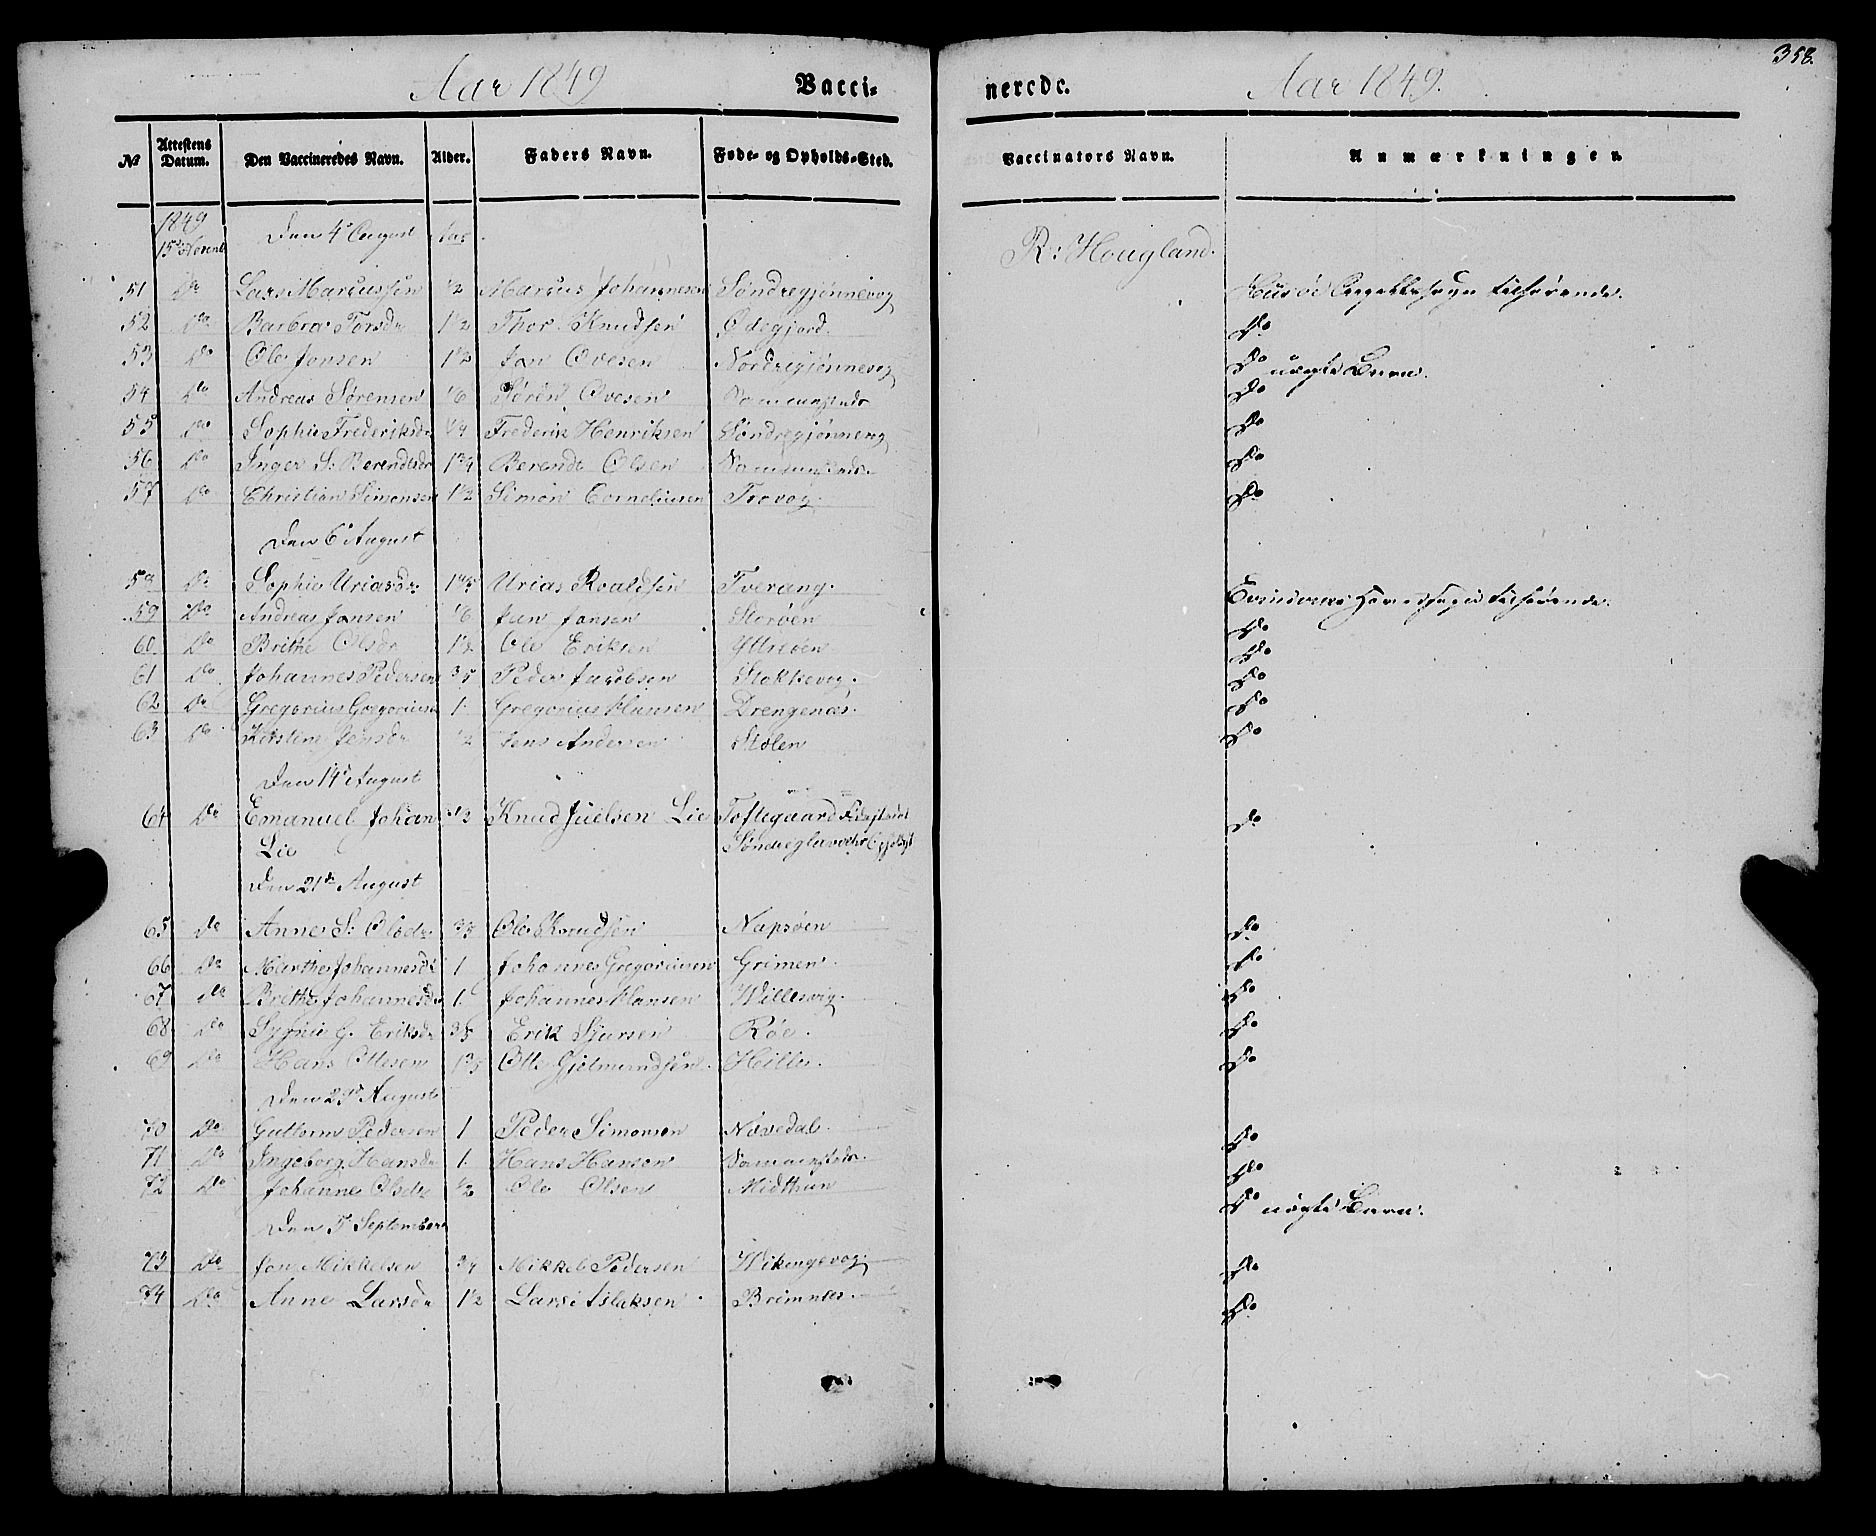 358.
Aar 1849 Vacci- nerede. Aar 1849.
No Attestens Datum. Den Vaccineredes Navn. Alder. Faders Navn. Føde- og Opholds-Sted. Vaccinators Navn. Anmærkninger.
1849
15de Novemb Den 4e August Aar R: Hougland.
51 Do Lars Marcussen 1/2 Marcus Johannesen Søndregjønnevog
52 Do Barbra Torsdr 1 1/2 Thor Knudsen Ødegjord. Do
53 Do Ole Jonsen 1 1/2 Jon Ovesen Nordregjønnevog Do uægte Barn.
54 Do Andreas Sørensen 1/6 Søren Ovesen Sammensteds Do
55 Do Sophie Frederiksdr 1/4 Frederik Henriksen Søndregjønnevog Do
56 Do Inger S: Berendtsdr 1 3/4 Berendt Olsen Sammesteds Do
57 Do Christian Simonsen 1 1/2 Simon Corneliusen Trovog. Do
Den 6e August
58 Do Sophie Uriasdr Urias Roaldsen Tverang.
59 Do Andreas Jansen 1/6 Jan Jansen Storøen Do
60 Do Brithe Olsdr 1/2 Ole Eriksen Yttreøen Do
61 Do Johannes Pedersen 3/5 Peder Jacobsen Stoksevog. Do
62 Do Gregorius Gregoriusen 1 Gregorius Hansen Drengenæs. Do
63 Do Kirstine Jensdr 1/2 Jens Andersen Stolen Do
Den 14e August
64 Do Emanuel Johan 1/2 Knud Juelsen Lie Toftegaard Fødested Do
Lie
Den 21de August
65 Do Anne S: Olsdr 3/5 Ole Knudsen Napsøen Do
66 Do Marthe Johannesdr 1 Johannes Gregoriusen Grimen. Do
67 Do Brithe Johannesdr 1. Johannes Hansen Willesvig. Do
68 Do G. Eriksdr 3/5 Erik Sjursen Røe. Do
69 Do Hans Ottesen 1 3/5 Otte Hille. Do
Den 29de August
70 Do Guttorm Pedersen 1 Peder Simonsen Næsedal. Do
71 Do Ingeborg Hansdr 1. Hans Hansen Sammesteds Do
72 Do Johanne Olsdr 1/2 Ole Olsen Midthun Do uægte Barn.
Den 5e September
73 Do Jon Mikkelsen 3/4 Mikkel Pedersen Wikingevog Do
74 Do Anne Larsdr 1 1/2 Lars Aslaksen Brimnes. Do